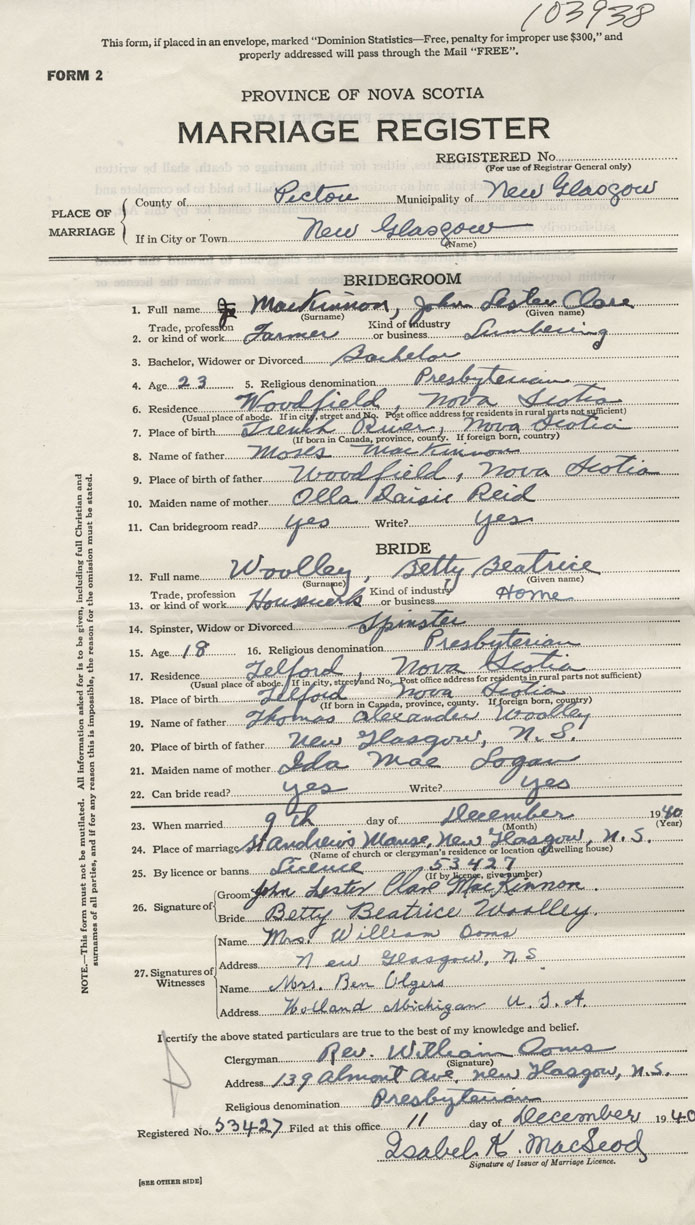 103938
This form, if placed in an envelope, marked "Dominion Statistics—Free, penalty for improper use $300," and
properly addressed will pass through the Mail "FREE".
FORM 2
PROVINCE OF NOVA SCOTIA
MARRIAGE REGISTER
REGISTERED No.
(For use of Registrar General only)
PLACE OF MARRIAGE
County of Pictou Municipality of New Glasgow
If in City or Town New Glasgow
(Name)
BRIDEGROOM
1. Full name MacKinnon, John Lester Clare
(Surname) (Given name)
Trade, profession Kind of industry
2. or kind of work Farmer or business Lumbering
3. Bachelor, Widower or Divorced Bachelor
4. Age 23 5. Religious denomination Presbyterian
6. Residence Woodfield, Nova Scotia
(Usual place of abode. If in city, street and No. Post office address for residents in rural parts not sufficient)
7. Place of birth French River, Nova Scotia
(If born in Canada, province, county. If foreign born, country)
8. Name of father Moses MacKinnon
9. Place of birth of father Woodfield, Nova Scotia
10. Maiden name of mother Olla Daisie Reid
11. Can bridegroom read? yes Write? yes
BRIDE
12. Full name Woolley, Betty Beatrice
(Surname) (Given name)
Trade, profession Kind of industry
13. or kind of work Housework or business Home
14. Spinster, Widow or Divorced Spinster
15. Age 18 16. Religious denomination Presbyterian
17. Residence Telford, Nova Scotia
(Usual place of abode. If in city, street and No. Post office address for residents in rural parts not sufficient)
18. Place of birth Telford Nova Scotia
(If born in Canada, province, county. If foreign born, country)
19. Name of father Thomas Alexander Woolley
20. Place of birth of father New Glasgow, N.S.
21. Maiden name of mother Ida Mae Logan
22. Can bride read? yes Write? yes
23. When married 9th day of December 1940
(Month) (Year)
24. Place of marriage St Andrew's Manse, New Glasgow, N.S.
(Name of church or clergyman's residence or location of dwelling house)
25. By licence or banns Licence 53427
(If by licence, give number)
26. Signature of
Groom John Lester Clare MacKinnon.
Bride Betty Beatrice Woolley.
27. Signatures of Witnesses
Name Mrs. William Ooms
Address New Glasgow, N.S
Name Mrs. Ben Olgers
Address Holland Michigan U.S.A.
I certify the above stated particulars are true to the best of my knowledge and belief.
Clergyman Rev. William Ooms
(Signature)
Address 139 Almont Ave, New Glasgow, N.S.
Religious denomination Presbyterian
Registered No. 53427 Filed at this office 11 day of December 1940
Isabel K. MacLeod
Signature of Issuer of Marriage Licence.
[SEE OTHER SIDE]
NOTE.—This form must not be mutilated. All information asked for is to be given, including full Christian and
surnames of all parties, and if for any reason this is impossible, the reason for the omission must be stated.